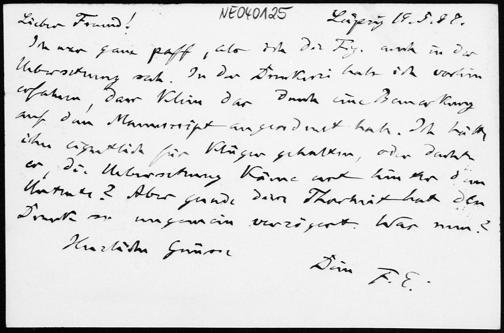 NE040125
Lieber Freund! Leipzig 19.5.88.
Ich war ganz paff, als ich die Fig. auch in der
Uebersetzung sah. In der Druckerei habe ich vorhin
erfahren, dass Klein das durch eine Bemerkung
auf dem Manuscript angeordnet hat. Ich hätte
ihn eigentlich für klüger gehalten, oder dachte
er, die Uebersetzung käme erst hinter dem
? Aber gerade diese Thorheit hat den
Druck so ungemein verzögert. Was nun?
Herzliche Grüsse
Dein F. E.